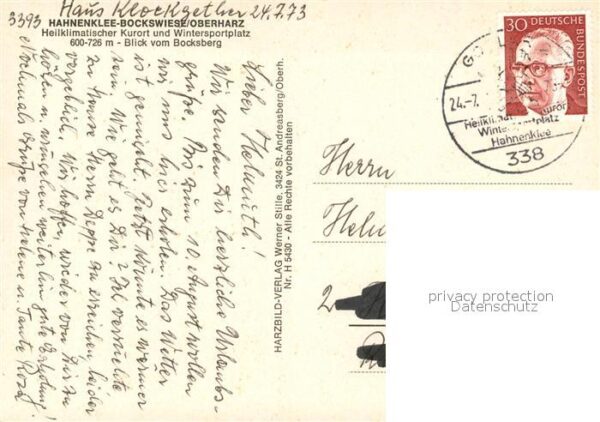 Haus Klockgether 24.7.73
3393 HAHNENKLEE-BOCKSWIESE/OBERHARZ
Heilklimatischer Kurort und Wintersportplatz
600-726 m - Blick vom Bocksberg
Lieber Helmuth!
Wir senden Dir herzliche Urlaubs-
grüße. Bis zum 10. August wollen
wir uns hier erholen. Das Wetter
ist gemischt. Jetzt könnte es wärmer
sein. Wie geht es Dir? Ich versuchte
zu Hause Herrn Deppe zu erreichen leider
vergeblich. Wir hoffen, wieder von Dir zu
hören u. wünschen weiterhin gute Erholung!
Nochmals Grüße von Helene u. Tante Rosa!
HARZBILD-VERLAG Werner Stille, 3424 St. Andreasberg/Oberh.
Nr. H 5430 - Alle Rechte vorbehalten
30 DEUTSCHE
BUNDESPOST
24.-7.
Heilklimat
Kurort
Wintersportplatz
Hahnenklee
338
Herrn
Helm
2
privacy protection
Datenschutz